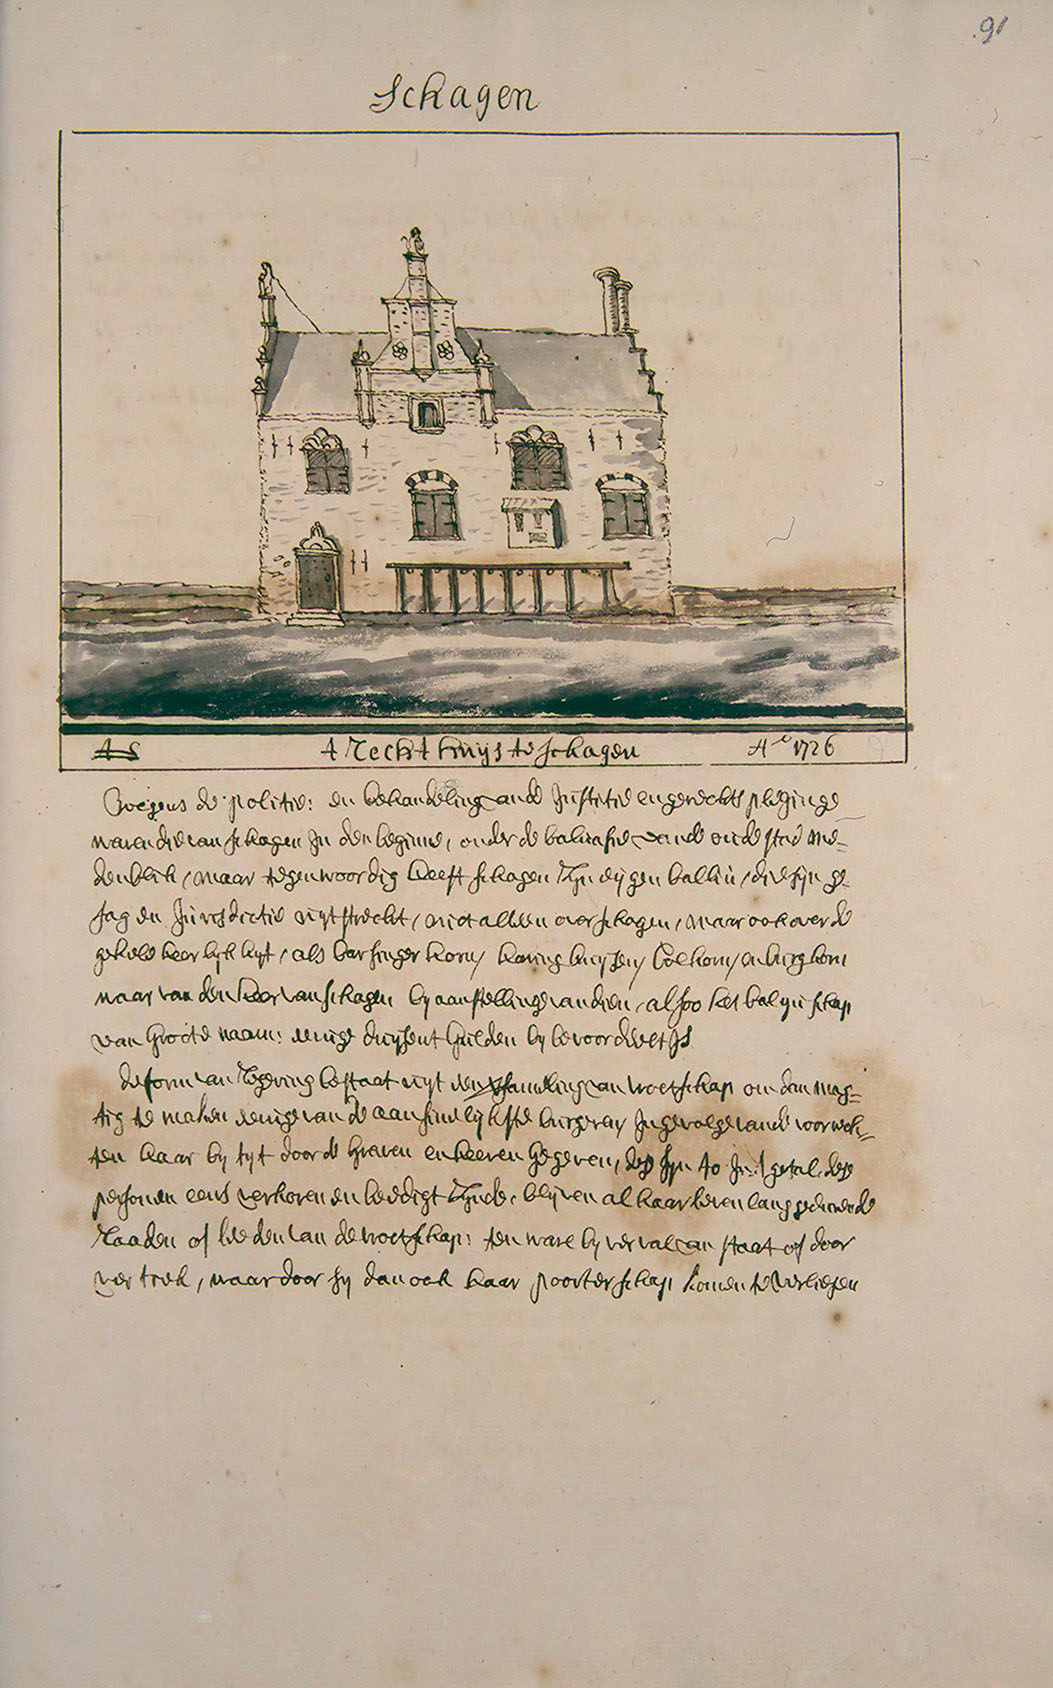 91
Schagen
A S
t Recht huijs te Schagen
Ao 1726
Wegens de politie: en behandeling vande Justitie en gerechts pleginge
waren die van schagen In den beginne, onder de baliuasie vande oude stad me-
denblik, maar tegenwoordig heeft schagen Zijn eijgen balliu, die sijn ge-
sag en Jurisdictie uijt streckt, niet alleen over schagen, maar ook over de
geheele heerlijk hijt, als barsinger horn, haring huijsen, Colhorn, en burghorn
waar van den heer van schagen by aanstellinge van dien, alsoo het baljuschap
van groote naam: eenige duijsent gulden by bevoordeelt Js
de form van Regering bestaat uijt een vsameling van vroetschap om dan mag-
tig te maken eenige van de aansienlijkste burgerey Jngevolge vande voorrech-
ten haar by tijt door de graven en heeren gegeven, dese sijn 40 Jn t getal, dese
personen eens verkoren en beedigt Zijnde, blijven al haar leven lang geduurende
Raaden of leeden van de vroetschap: ten ware by verval van staat of door
vertrek, waar door sy dan ook haar poorterschap komen te verliesen